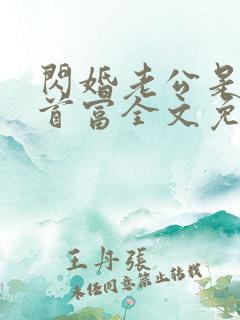 閃婚老公是
首富全文免
王丹張
未經同意禁止轉載